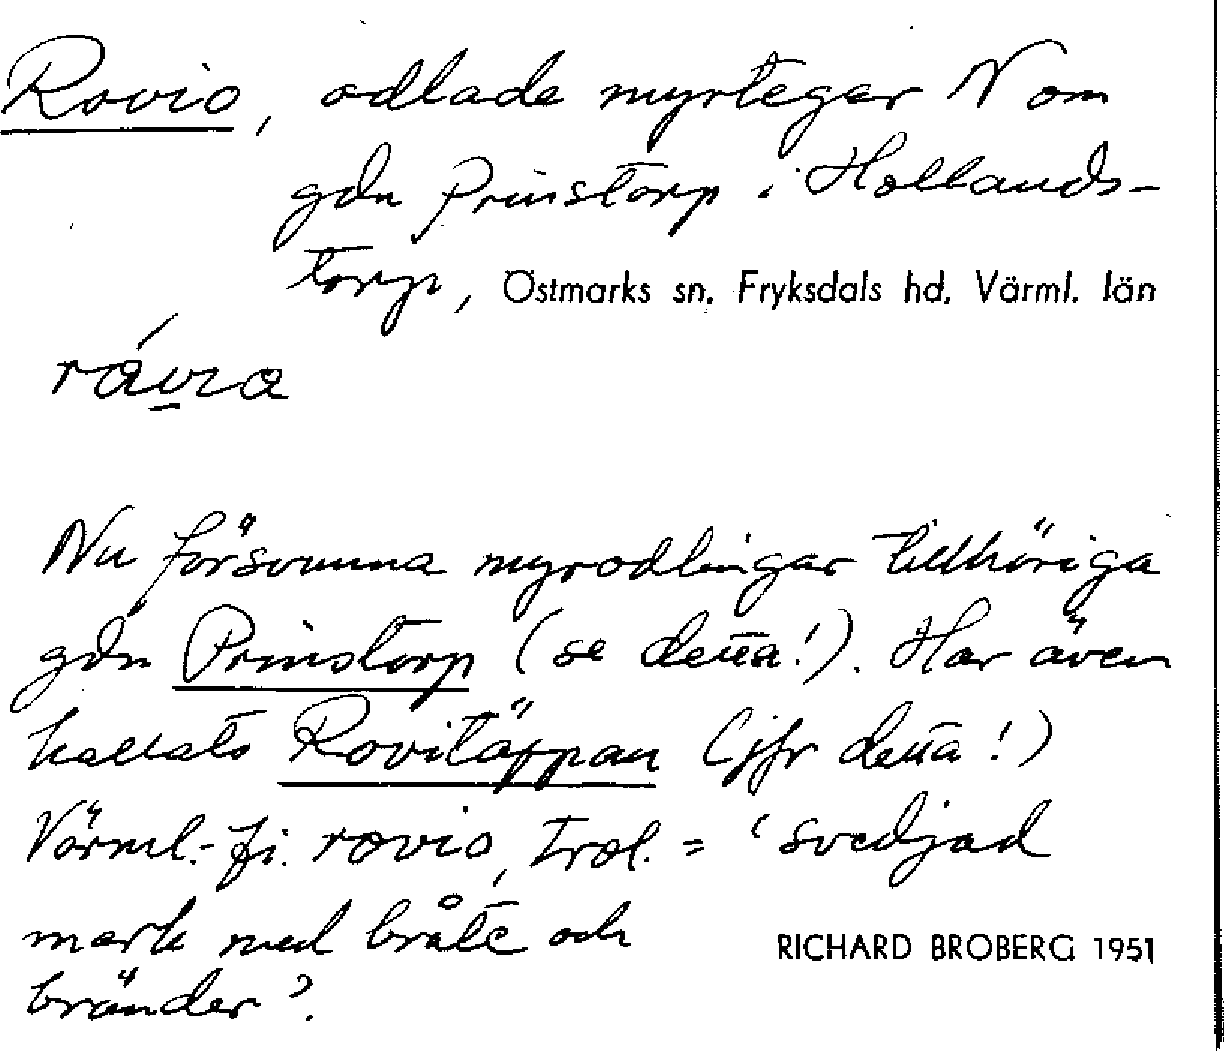 Rovio, odlade myrtegar N om
gdn Prinstorp i Hollands-
torp, Östmarks sn. Fryksdals hd. Värml. län
råvıa
Nu försumna myrodlingar tillhöriga
gdn Prinstorp (se detta!). Har även
kallats Rovitäppan (jfr detta!)
Värml.-fi. rovio, trol. = 'svedjad
mark med bråte och
bränder'.
RICHARD BROBERG 1951